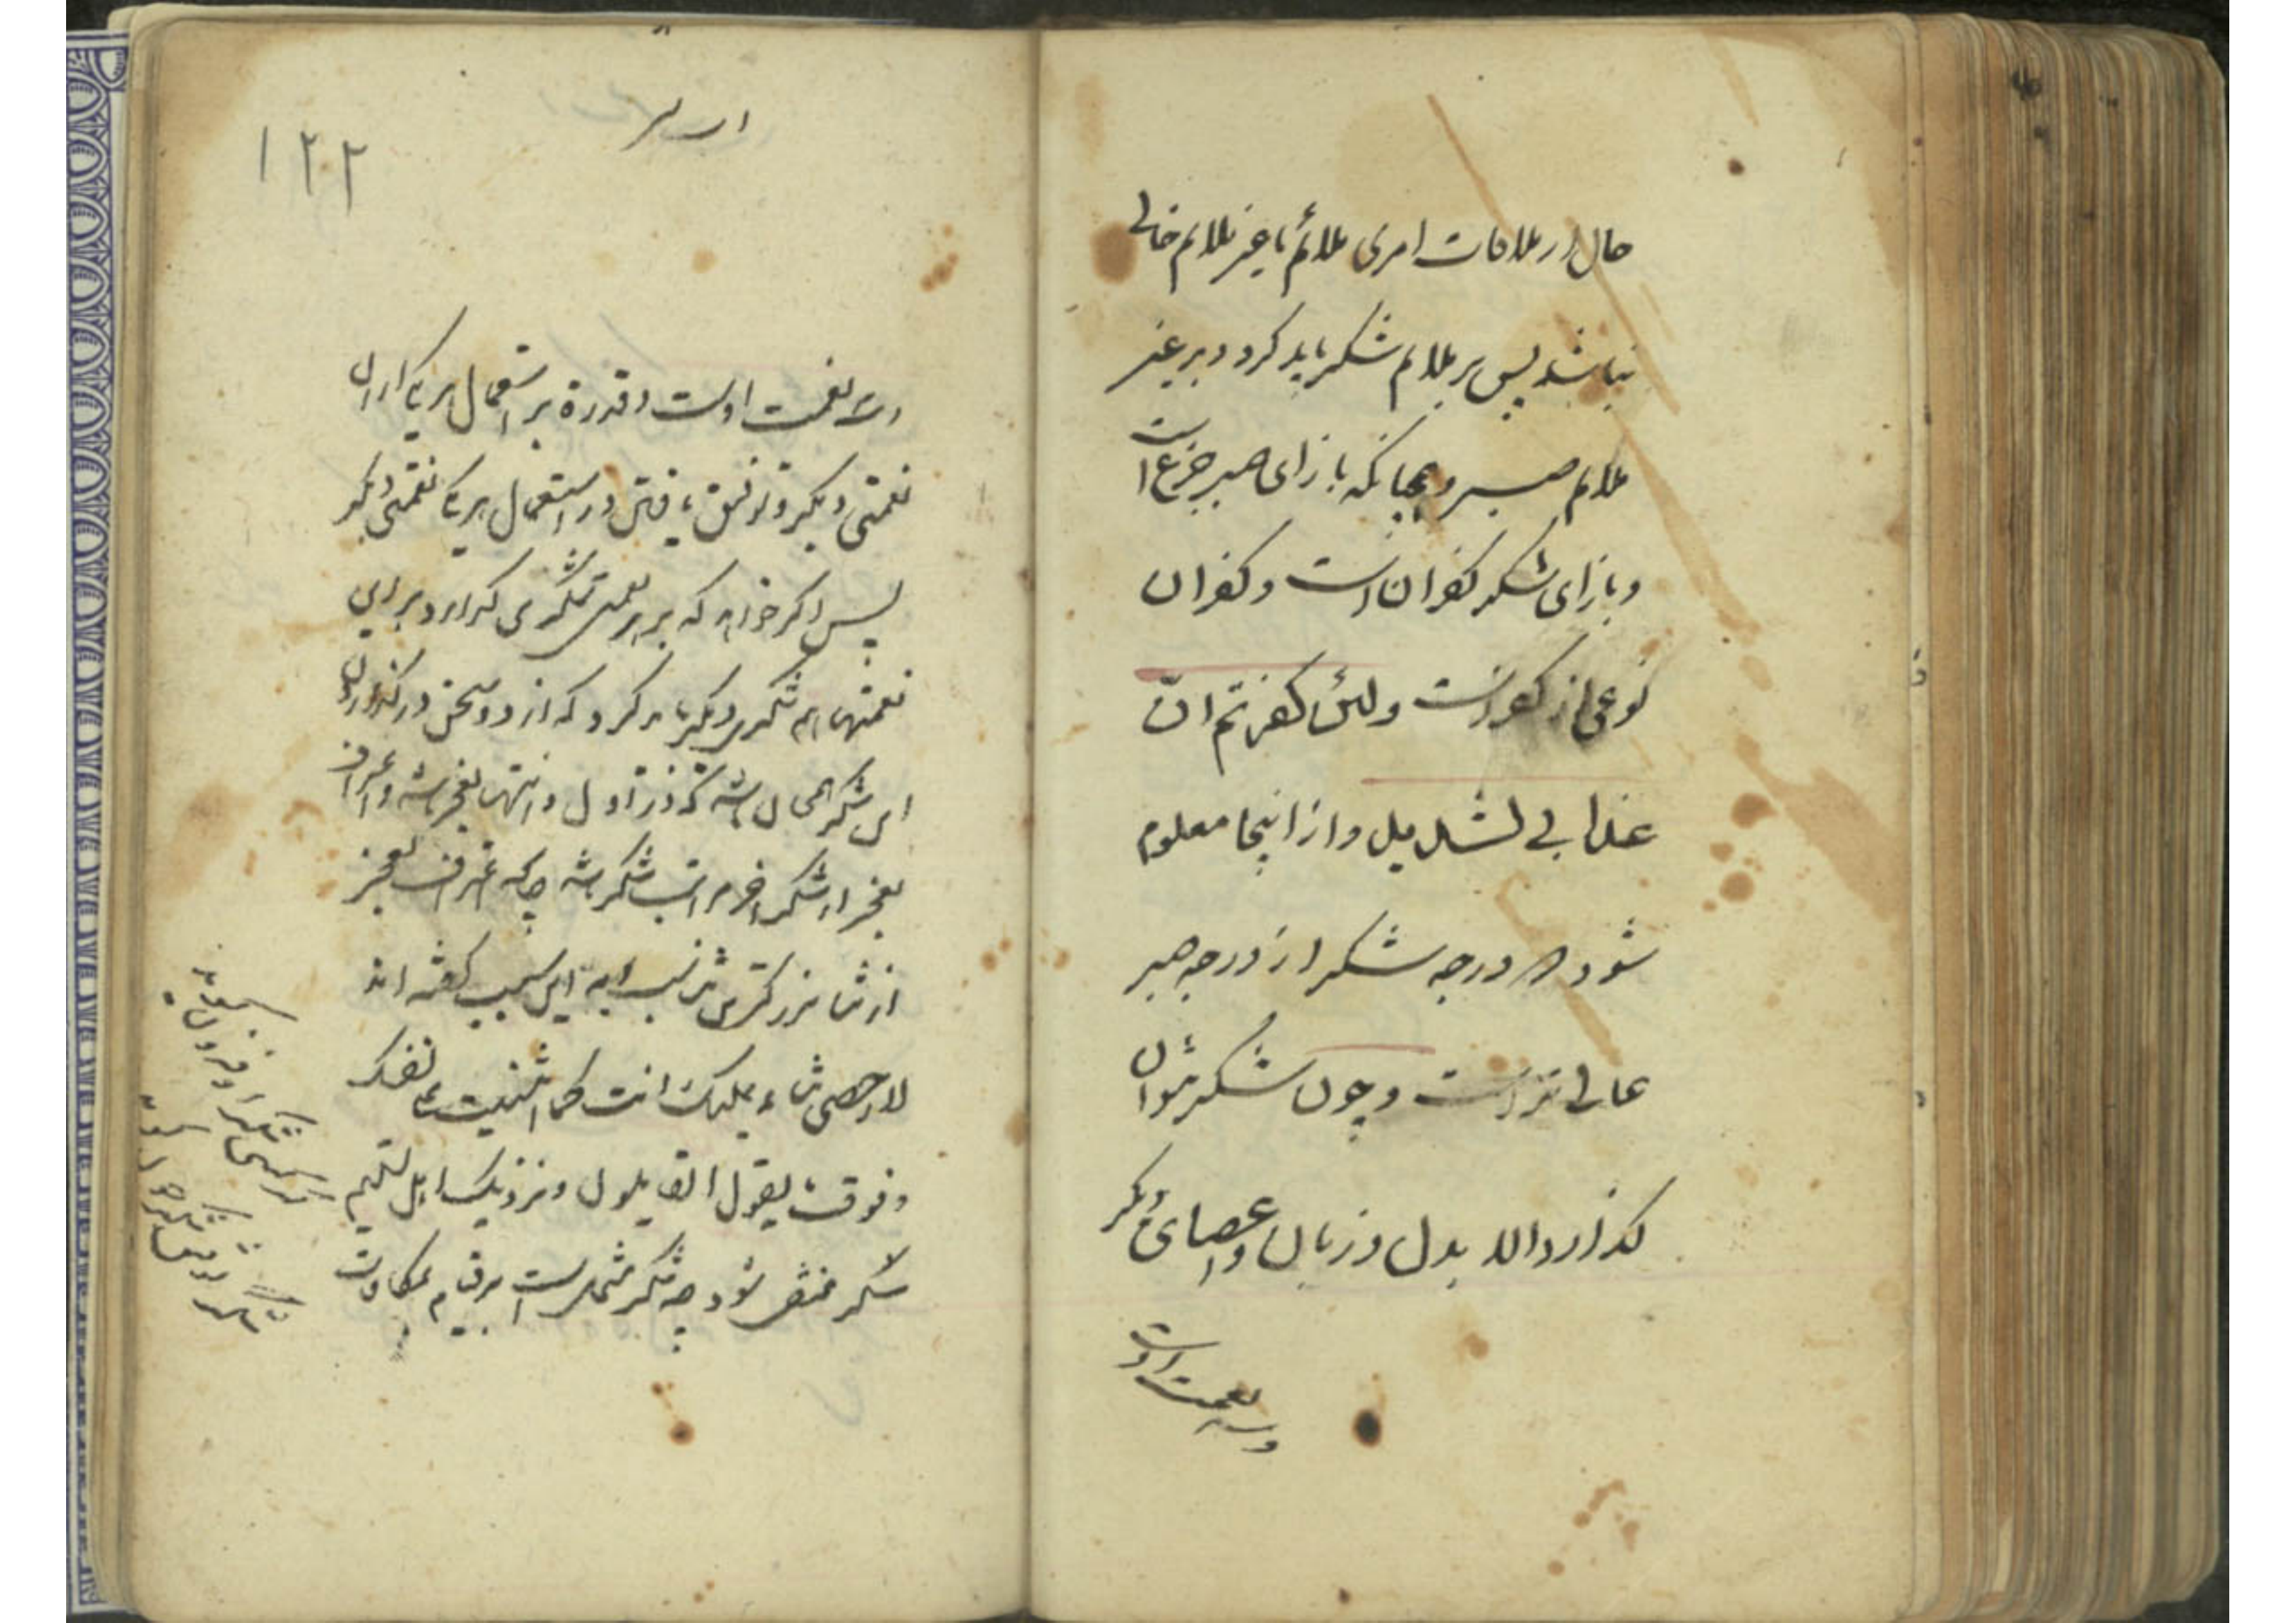 حال از ملاقات امری ملائم یا غیر ملایم خالی
نباشد پس بر ملایم شکر باید کرد و بر غیر
ملایم صبر و همچنانکه بازای صبر جزع است
و بازای شکر کفران است و کفران
نوعی از کفر است ولئن کفرتم ان
عذابی لشدید و از اینجا معلوم
شود که درجه شکر از درجه صبر
عالی تر است و چون شکر نتوان
گذارد الا بدل و زبان و اعضای دیگر
و سه نعمت اوست
۱۲۲
نعمت اوست و قدرة بر استعمال هر یک از ان
نعمتی دیگر و توفیق یافتن در استعمال هر یک نعمتی دیگر
پس اگر خواهد که بر هر نعمتی شکری گذارد بر این
نعمتها هم شکری دیگر باید کرد که از دو سخن در گذاردن
این شکر همچنان باشد که در اول و انتها بعجز باشد و اعتراف
بعجز از شکر اخر مراتب شکر باشد چنانکه اعتراف بعجز
از ثنا بزرگترین ثناست و به این سبب گفته اند
لا احصی ثناء علیک انت کما اثنیت علی نفسک
و فوق ما یقول القایلون و نزدیک اهل تسلیم
شکر منتفی شود چه شکر مشتمل است بر قیام بمکافات